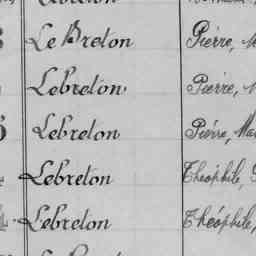 Le Breton Pierre, M
Lebreton Pierre, M
Lebreton Pierre, Ma
Lebreton Théophile,
Lebreton Théophile,